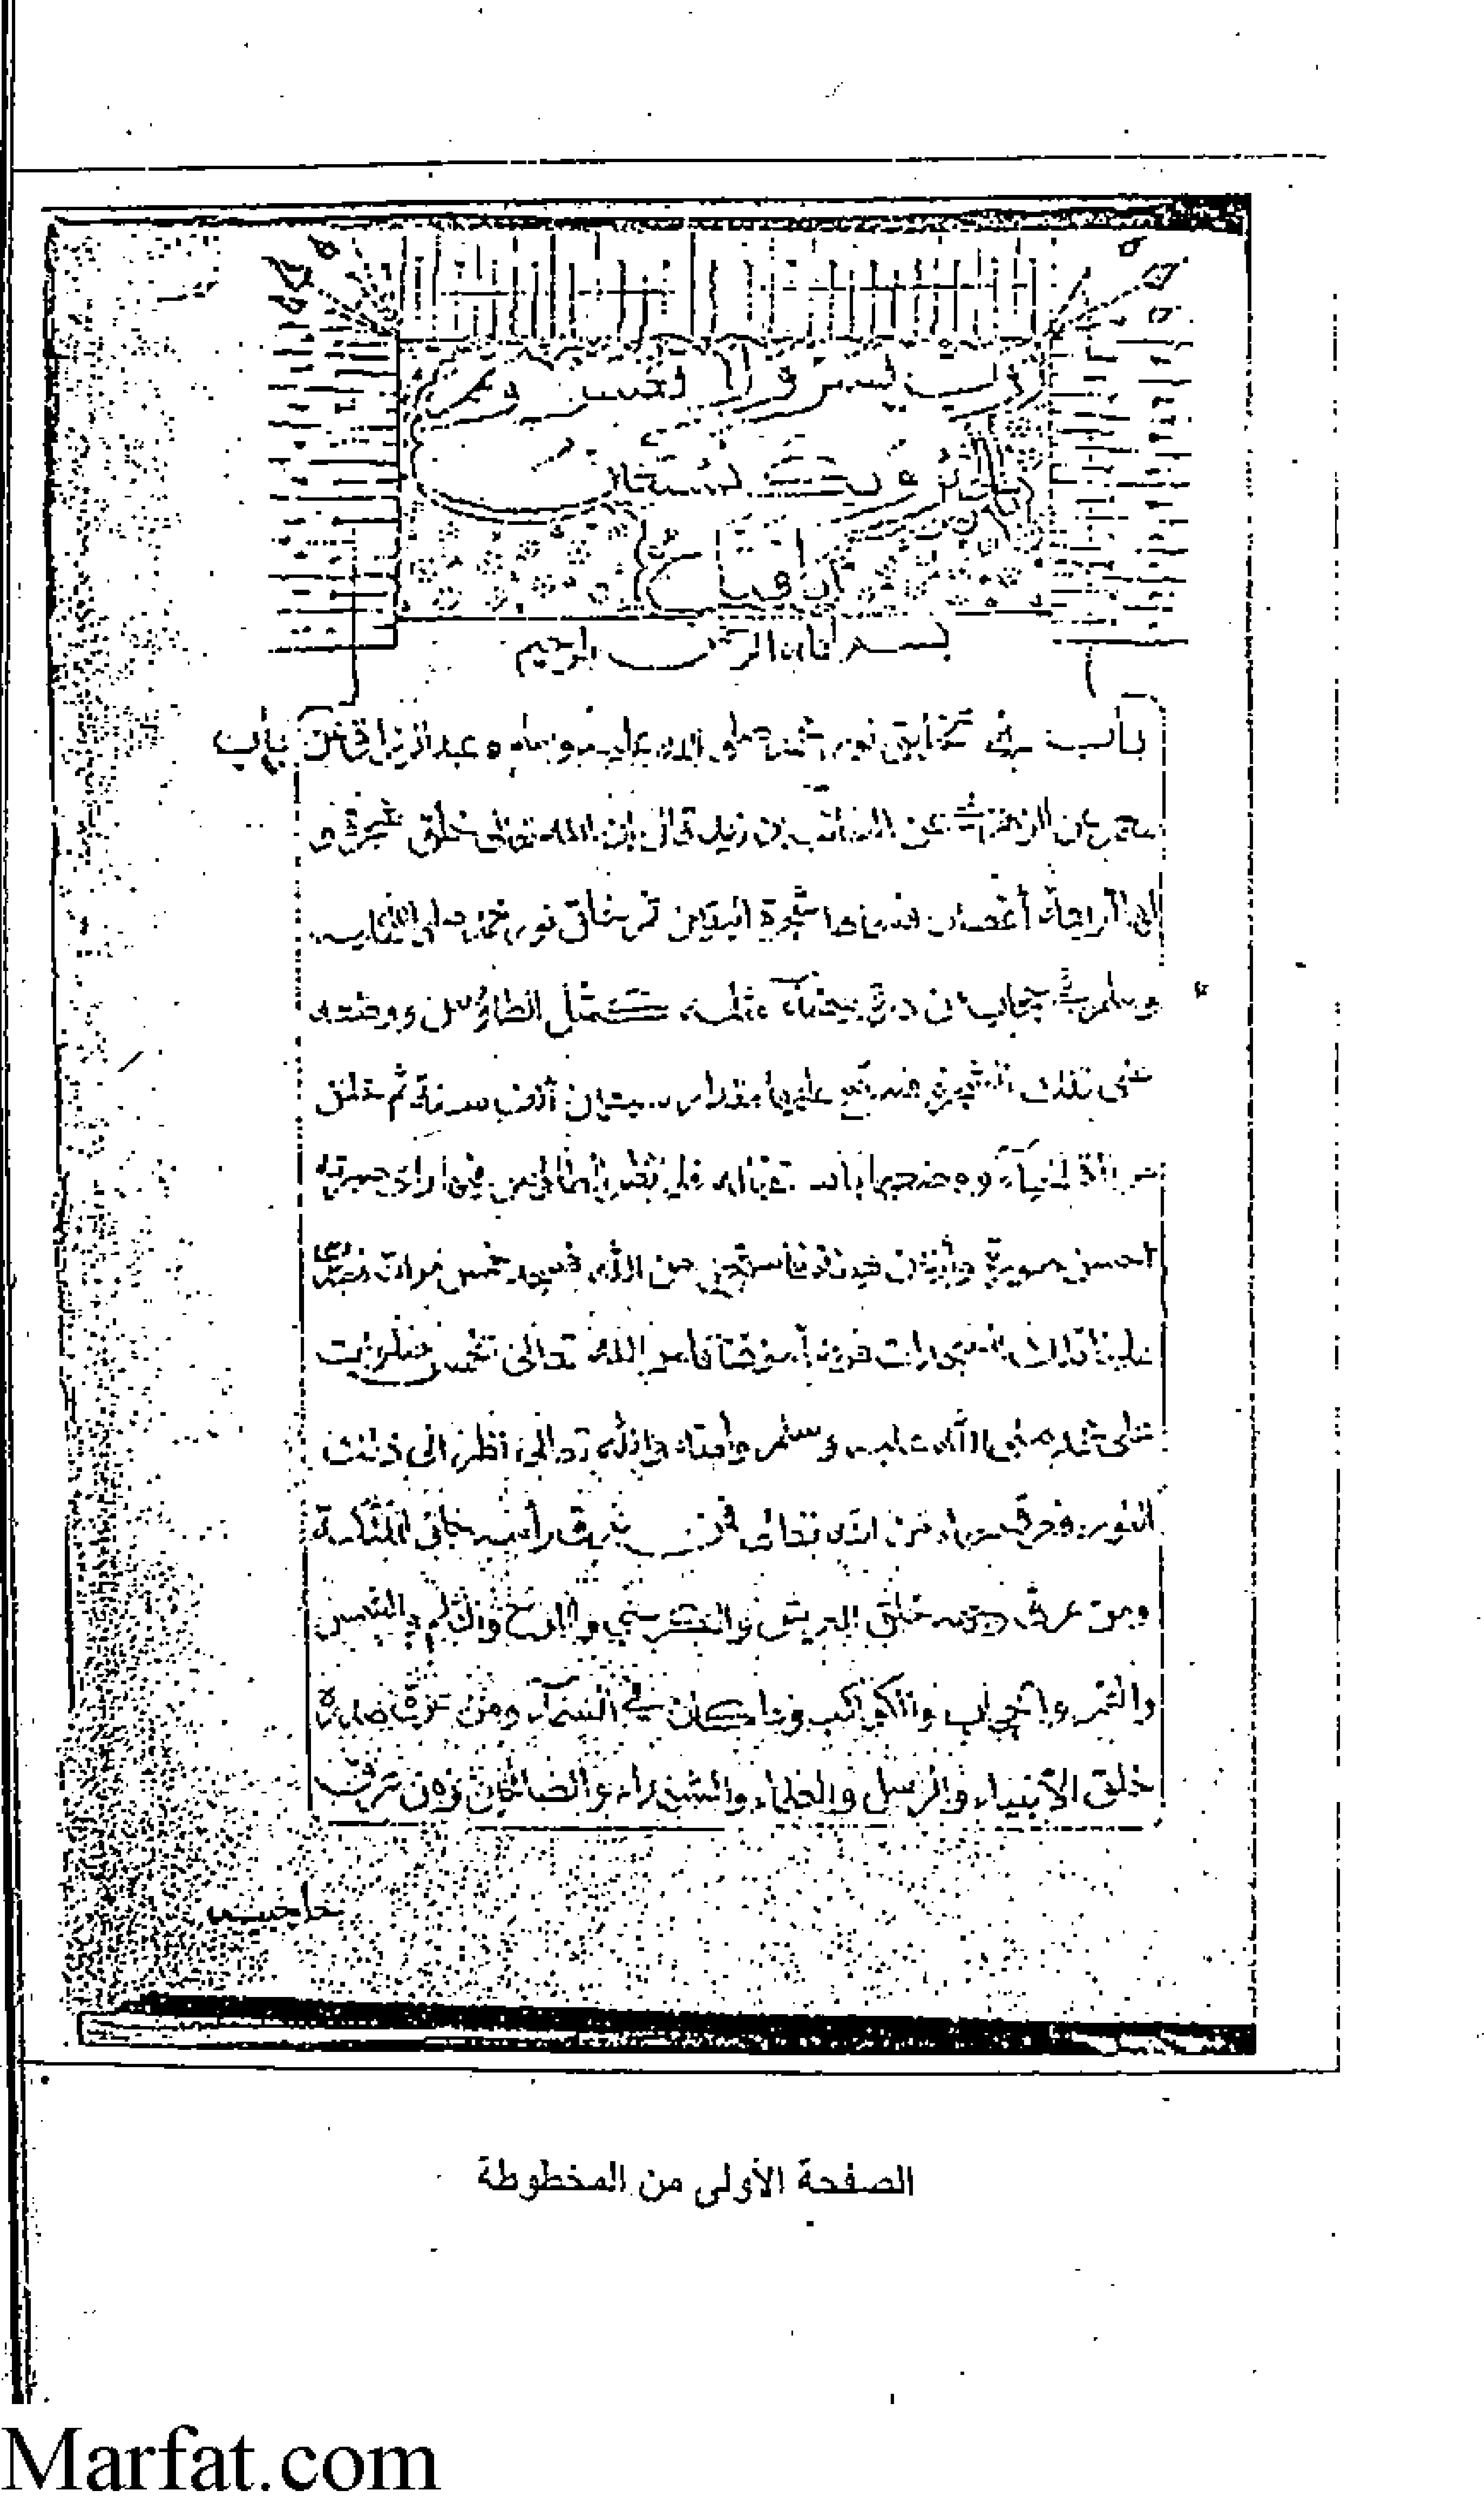 رب يسر ولا تعسر و
وبك نستعين
يافتاح
بسم الله الرحمن الرحيم
باب في تخليق نور محمد صلى الله عليه وسلم عبد الرزاق عن باب
معمر عن الزهري عن السائب بن زيد قال إن الله تعالى خلق شجرة و
لها أربعة أغصان فسماها شجرة اليقين ثم خلق نور محمد صلى الله عليه
وسلم في حجاب من درة بيضاء مثله كمثل الطاؤس ووضعه
على تلك الشجرة فسبح عليها مقدار سبعين ألف سنة ثم خلق
مرآة الحياء ووضعها باستقباله فلما نظر الطاؤس فيها رأى صورته
احسن صورة وأزين هيئة فاستحى من الله فسجد خمس مرات فصارت
علينا تلك السجدات فرضا موقتا فأمر الله تعالى بخمس صلوات
على محمد صلى الله عليه وسلم وأمته والله تعالى نظر الى ذلك
النور فعرق حياء من الله تعالى فمن عرق رأسه خلق الملئكة
ومن عرق وجهه خلق العرش والكرسي واللوح والقلم والشمس
والقمر والحجاب والكواكب وما كان في السماء ومن عرق صدره
خلق الأنبياء والرسل والعلماء والشهداء والصالحين ومن عرق
حاجبيه
الصفحة الأولى من المخطوطة
Marfat.com